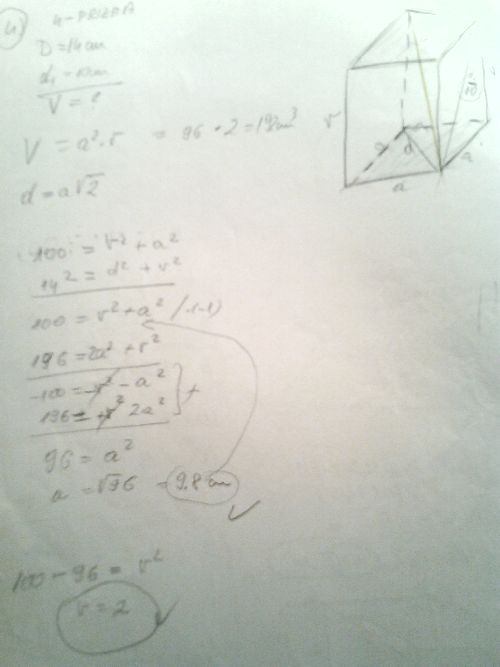 4)
4-PRIZMA
D = 14 cm
d₁ = 10 cm
V = ?
V = a² · v = 96 · 2 = 192 cm³
d = a√2
100 = v² + a²
14² = d² + v²
100 = v² + a² / · (-1)
196 = 2a² + v²
-100 = -v² - a²
196 = +v² 2a² } +
96 = a²
a = √96 = 9.8 cm
100 - 96 = v²
v = 2
v
10
a
d
a
a